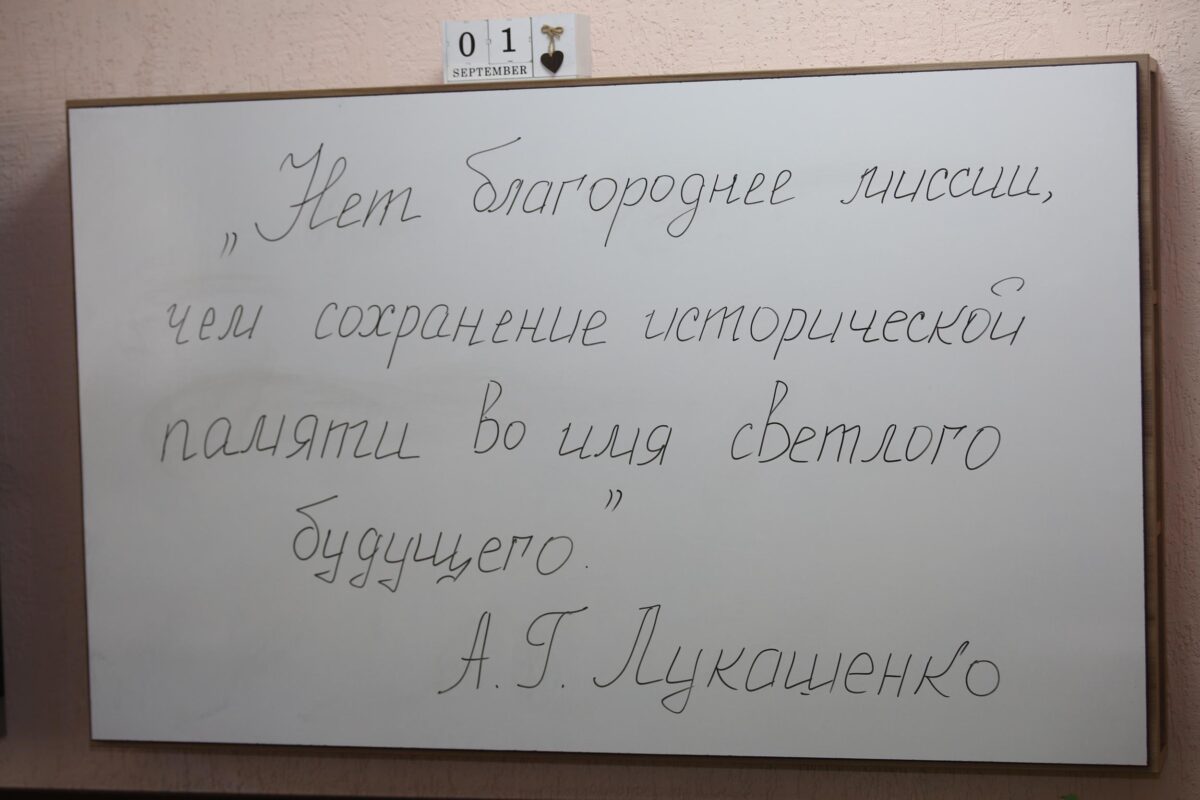 01
SEPTEMBER
„Нет благороднее миссии,
чем сохранение исторической
памяти во имя светлого
будущего.”
А.Г. Лукашенко